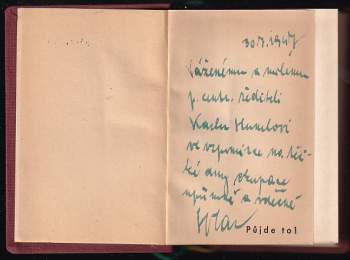 30/5.1947
Váženému a milému
p. centr. řediteli
Karlu Hummelovi
ve vzpomínce na těž-
ké dny okupace
upřímně a vděčně
Půjde to!